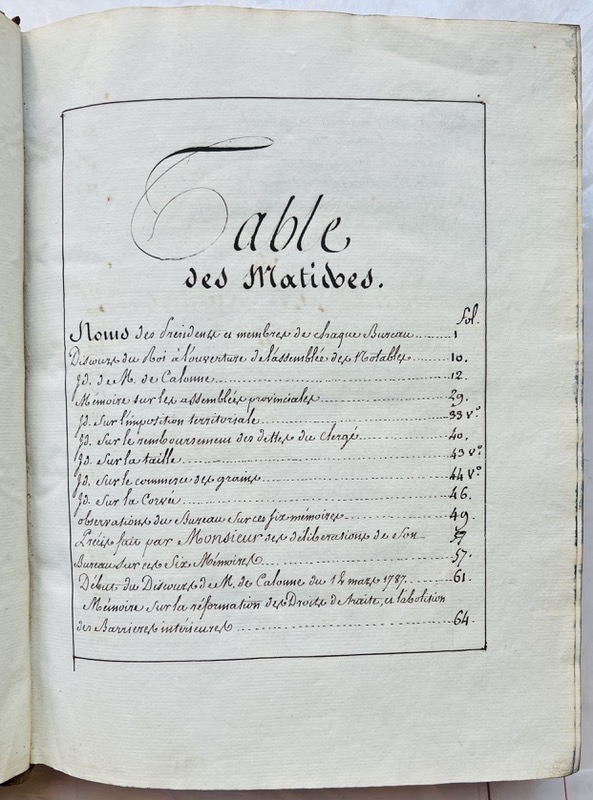 Table
des Matieres.
fol.
Noms des Presidents et membres de chaque Bureau........1
Discours du Roi à l'ouverture de l'assemblée des Notables........10.
Jd. de M. de Calonne........12.
Mémoire sur les assemblées provinciales........29.
Jd. Sur l'imposition territoriale........33 v.º
Jd. Sur le remboursement des dettes du clergé........40.
Jd. Sur la taille........43 v.º
Jd. Sur le commerce des grains........44 v.º
Jd. Sur la Corvée........46.
observations du Bureau Sur ces six mémoires........49.
Précis fait par Monsieur des déliberations de Son
Bureau sur ces Six Mémoires........57.
Début du Discours de M. de Calonne du 12 mars 1787........61.
Mémoire Sur la réformation des Droits de traite, et l'abolition
des Barrieres intérieures........64.